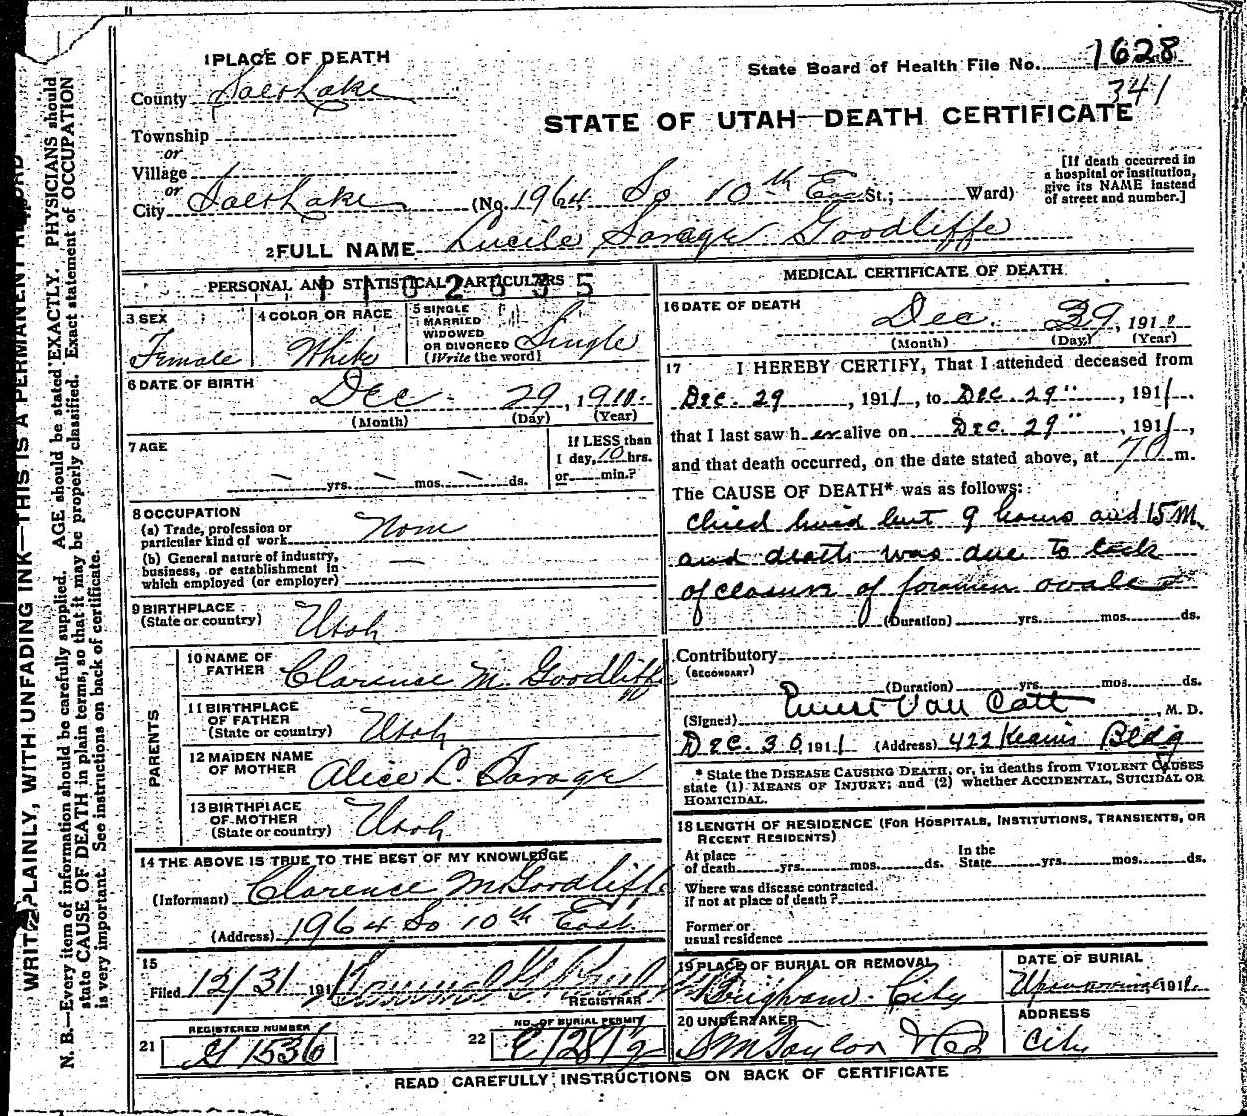 1 PLACE OF DEATH
County Salt Lake
Township
or
Village
or
City Salt Lake (No. 1964 So 10th East St.; Ward)
State Board of Health File No. 1628
341
STATE OF UTAH—DEATH CERTIFICATE
[If death occurred in
a hospital or institution,
give its NAME instead
of street and number.]
2 FULL NAME Lucile Savage Goodliffe
PERSONAL AND STATISTICAL PARTICULARS
3 SEX
Female
4 COLOR OR RACE
White
5 SINGLE
MARRIED
WIDOWED
OR DIVORCED
(Write the word)
Single
6 DATE OF BIRTH
Dec 29, 1911
(Month) (Day) (Year)
7 AGE
— yrs. — mos. — ds.
If LESS than
1 day, 10 hrs.
or min.?
8 OCCUPATION
(a) Trade, profession or
particular kind of work None
(b) General nature of industry,
business, or establishment in
which employed (or employer) —
9 BIRTHPLACE
(State or country) Utah
PARENTS
10 NAME OF
FATHER Clarence M. Goodliffe
11 BIRTHPLACE
OF FATHER
(State or country) Utah
12 MAIDEN NAME
OF MOTHER Alice L. Savage
13 BIRTHPLACE
OF MOTHER
(State or country) Utah
14 THE ABOVE IS TRUE TO THE BEST OF MY KNOWLEDGE
(Informant) Clarence M Goodliffe
(Address) 1964 So 10th East
15
Filed 12/31 191
REGISTRAR
21 REGISTERED NUMBER
G 1536
22 NO. OF BURIAL PERMIT
MEDICAL CERTIFICATE OF DEATH
16 DATE OF DEATH
Dec. 29, 1911
(Month) (Day) (Year)
17 I HEREBY CERTIFY, That I attended deceased from
Dec. 29, 1911, to Dec. 29", 1911.
that I last saw her alive on Dec. 29", 1911,
and that death occurred, on the date stated above, at m.
The CAUSE OF DEATH* was as follows:
Child lived but 9 hours and 15 M.
and death was due to lack
of closure of foramen ovale
(Duration) yrs. mos. ds.
Contributory
(SECONDARY)
(Duration) yrs. mos. ds.
(Signed) Ernest Van Cott, M. D.
Dec. 30 1911 (Address) 422 Kearns Bldg
* State the DISEASE CAUSING DEATH, or, in deaths from VIOLENT CAUSES
state (1) MEANS OF INJURY; and (2) whether ACCIDENTAL, SUICIDAL OR
HOMICIDAL.
18 LENGTH OF RESIDENCE (FOR HOSPITALS, INSTITUTIONS, TRANSIENTS, OR
RECENT RESIDENTS)
At place
of death yrs. mos. ds. In the
State yrs. mos. ds.
Where was disease contracted,
if not at place of death?
Former or
usual residence
19 PLACE OF BURIAL OR REMOVAL
Brigham City
DATE OF BURIAL
1911
20 UNDERTAKER
S M Taylor & Co
ADDRESS
City
READ CAREFULLY INSTRUCTIONS ON BACK OF CERTIFICATE
WRITE PLAINLY, WITH UNFADING INK—THIS IS A PERMANENT RECORD.
N. B.—Every item of information should be carefully supplied. AGE should be stated EXACTLY. PHYSICIANS should
state CAUSE OF DEATH in plain terms, so that it may be properly classified. Exact statement of OCCUPATION
is very important. See instructions on back of certificate.